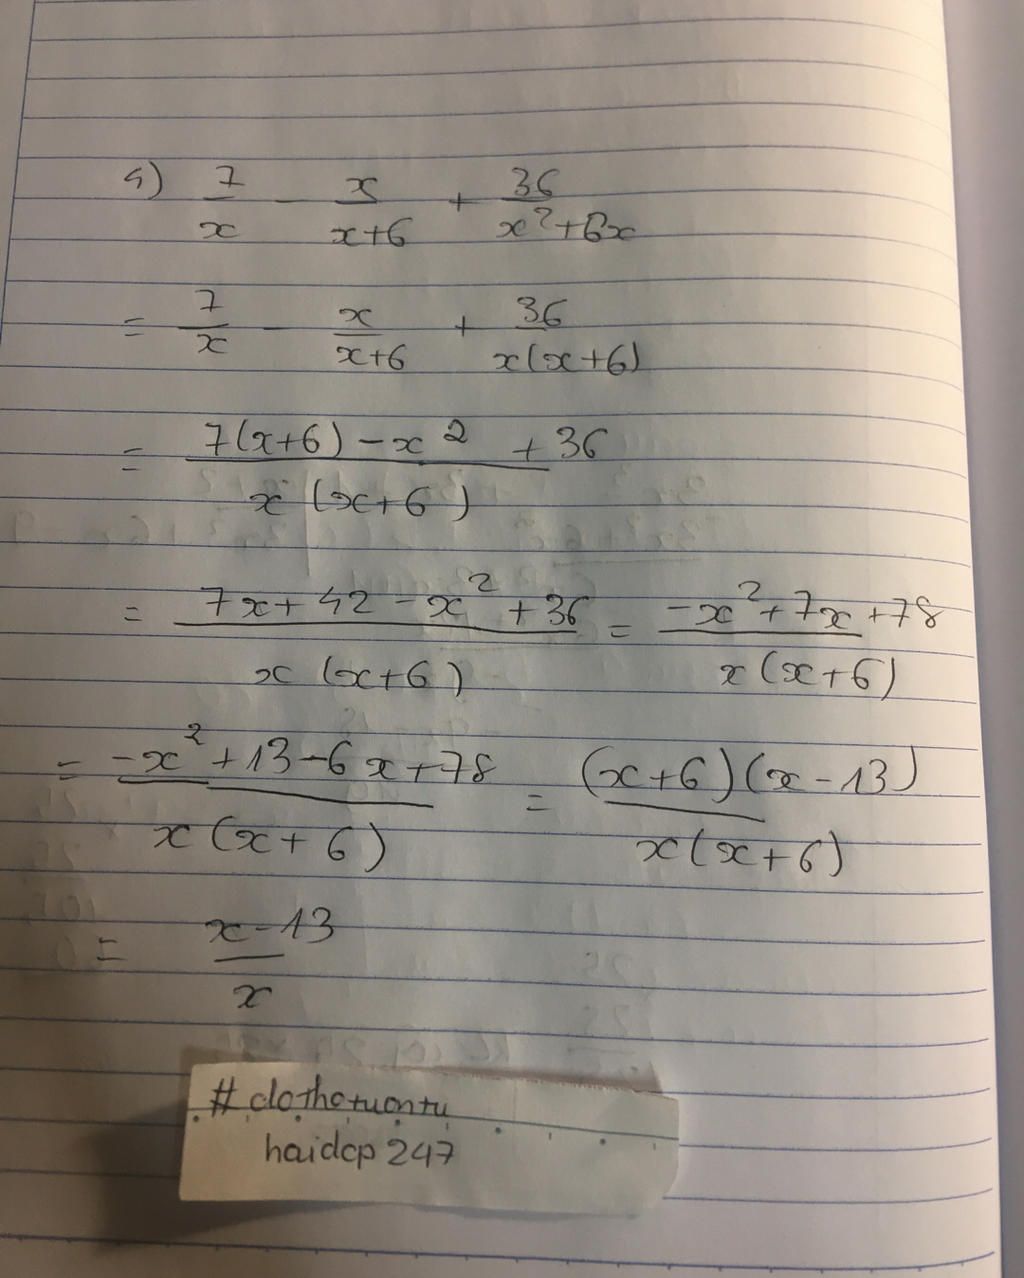 a) 7/x - x/x+6 + 36/x²+6x
= 7/x - x/x+6 + 36/x(x+6)
= 7(x+6) - x² + 36 / x(x+6)
= 7x + 42 - x² + 36 / x(x+6) = -x² + 7x + 78 / x(x+6)
= -x² + 13 - 6x + 78 / x(x+6) = (x+6)(x-13) / x(x+6)
= x-13 / x
# clothetuontu
haidcp 247